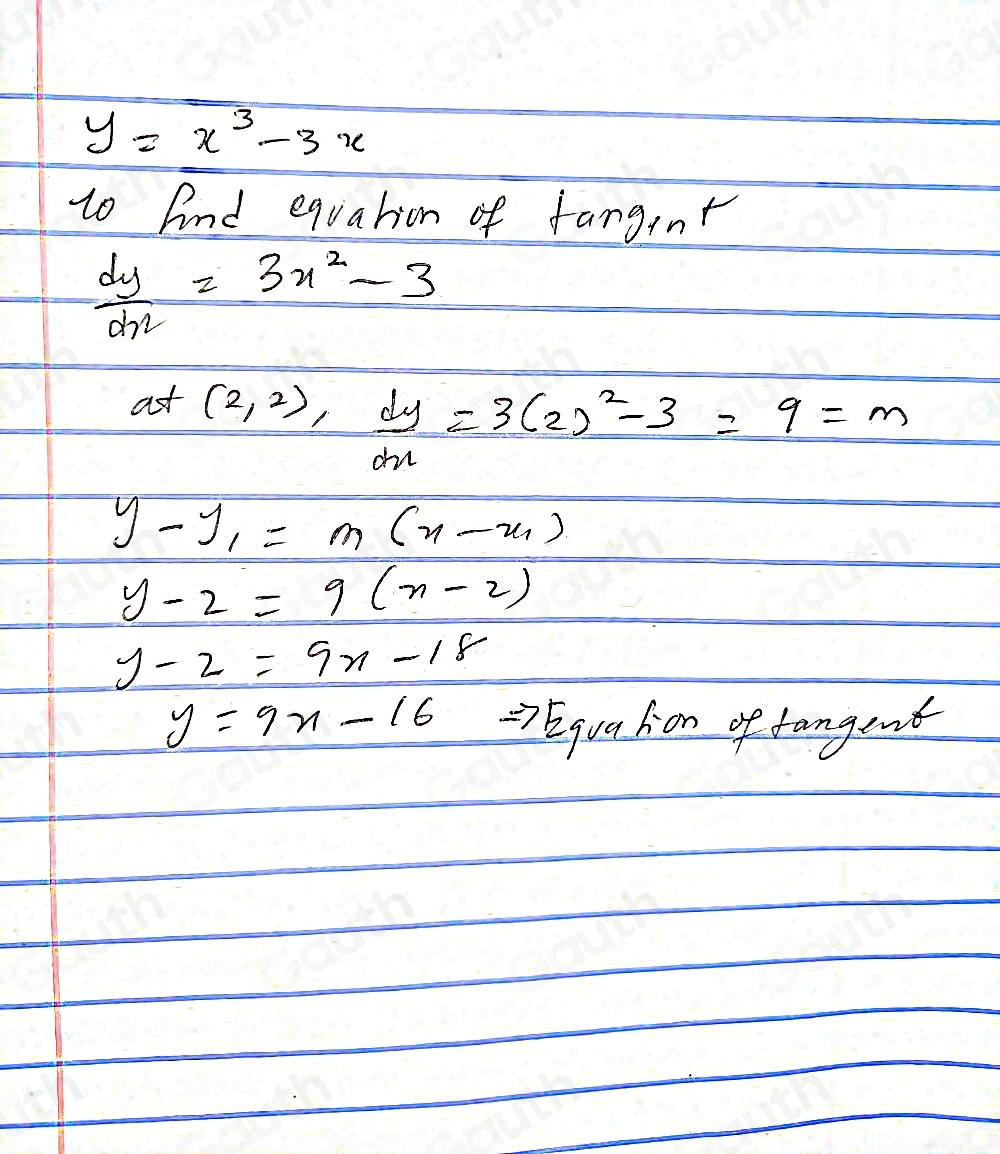 y = x³ - 3x
to find equation of tangent
dy/dx = 3x² - 3
at (2,2), dy/dx = 3(2)² - 3 = 9 = m
y - y₁ = m(x - x₁)
y - 2 = 9(x - 2)
y - 2 = 9x - 18
y = 9x - 16 ⇒ Equation of tangent
Gauth